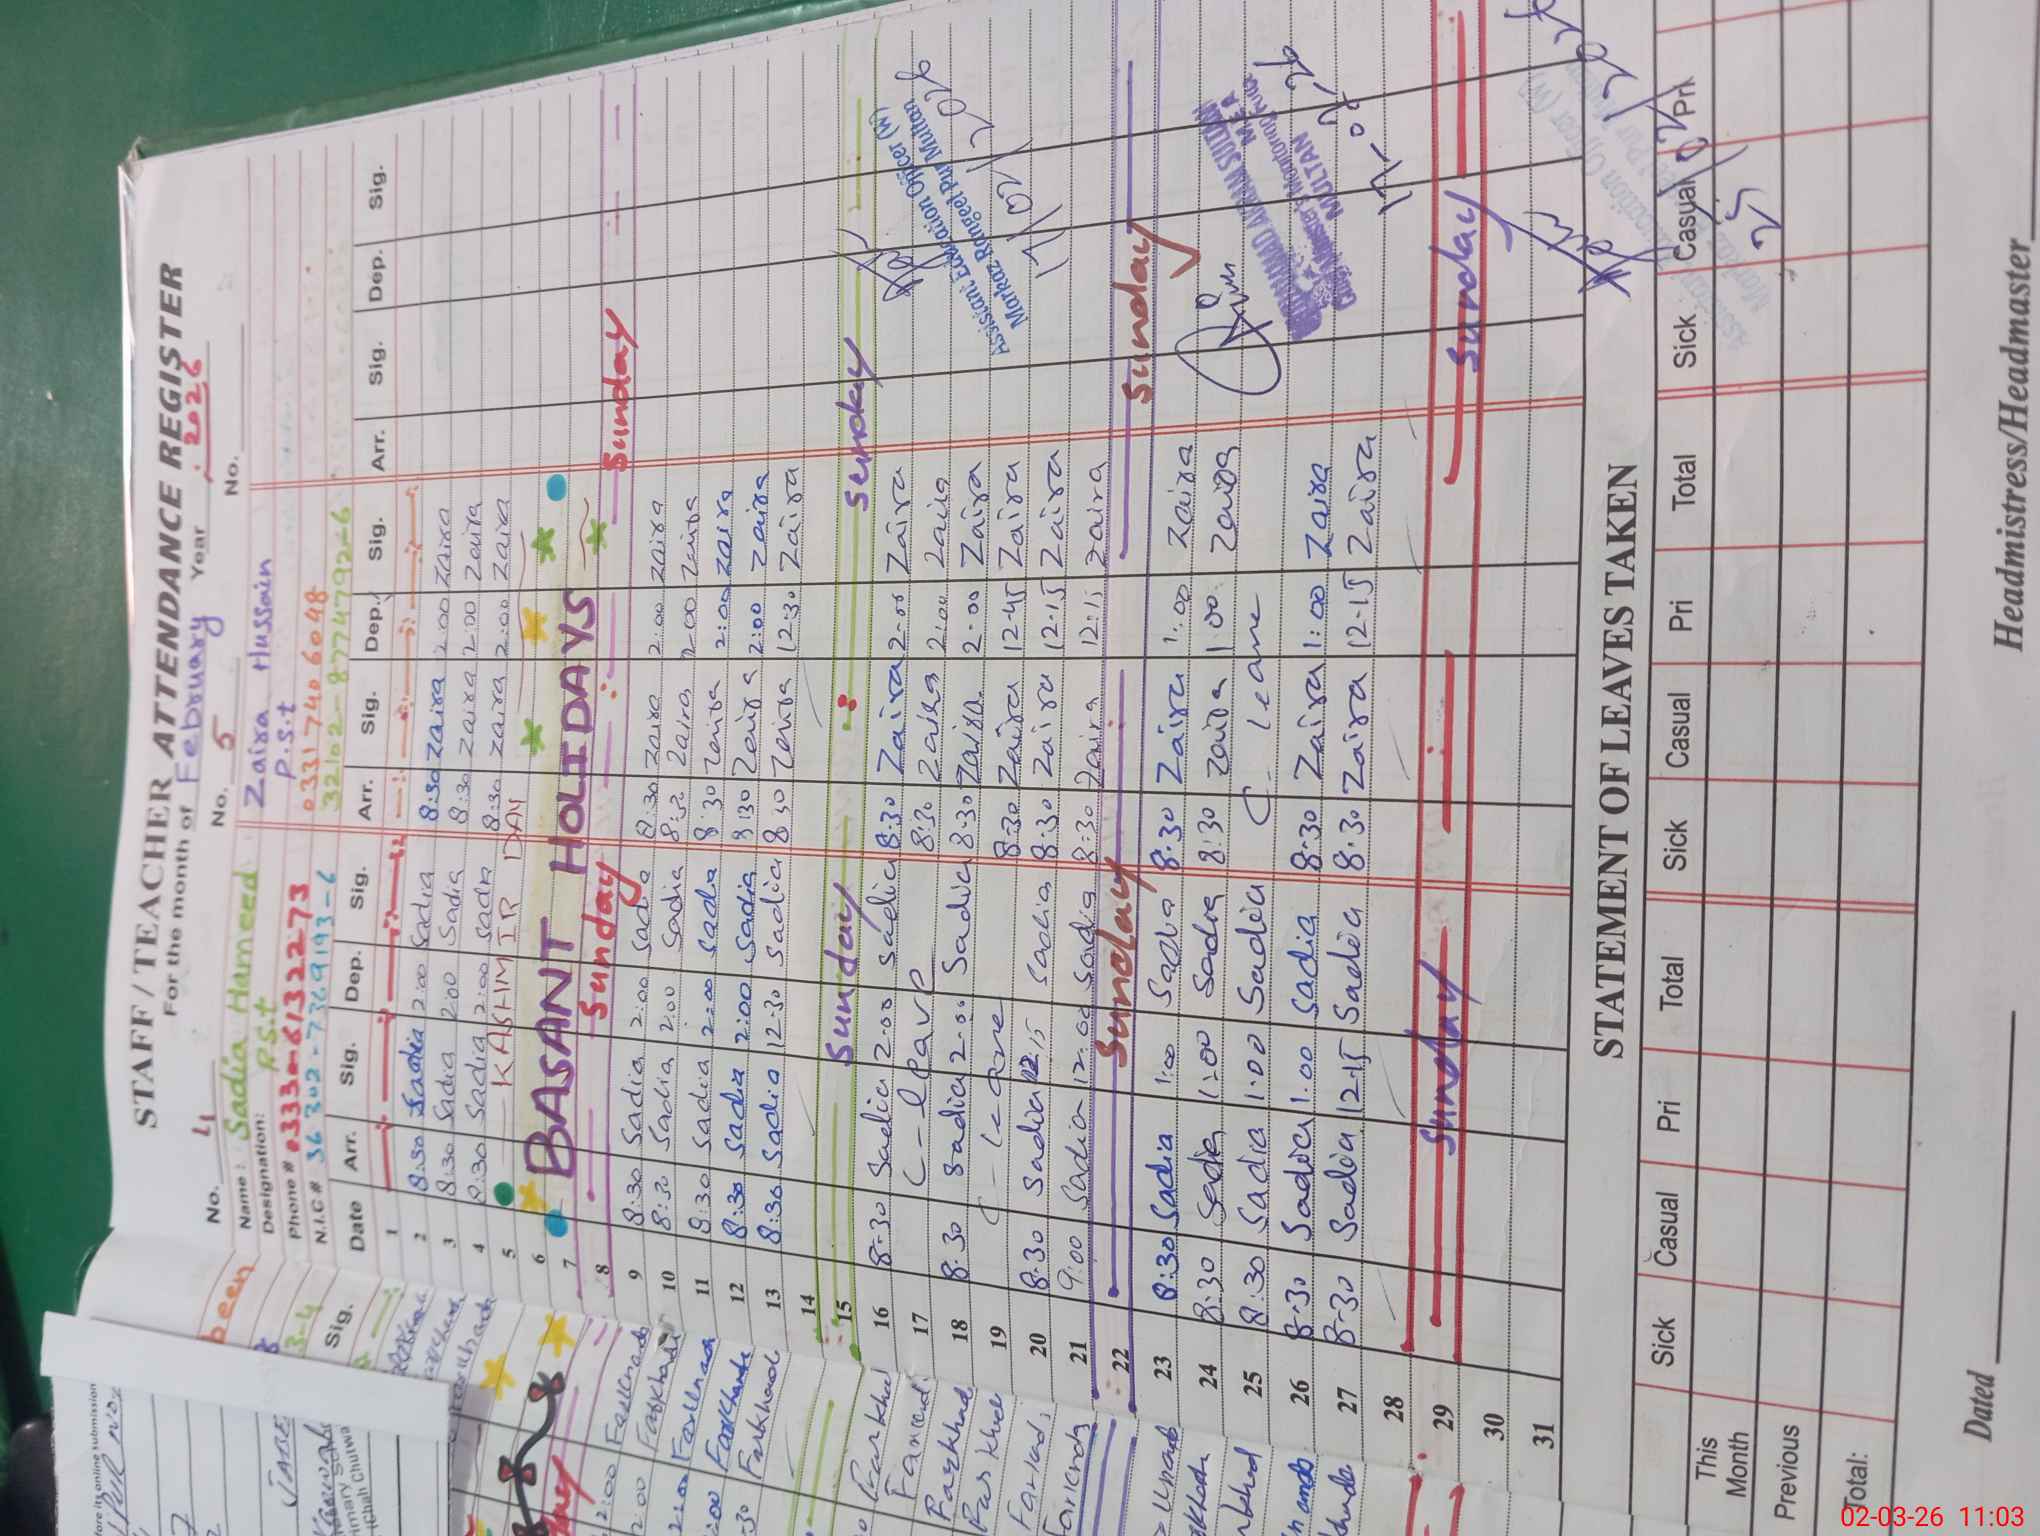 STAFF / TEACHER ATTENDANCE REGISTER
For the month of February Year 2026
No. 4 No. 5 No.
Name: Sadia Hameed Zaira Hussain
Designation: P.S.t P.S.t
Phone # 03330-6132273 03317406048
N.I.C # 36302-7369193-6 32102-8774792-6
Date Arr. Sig. Dep. Sig. Arr. Sig. Dep. Sig. Arr. Sig. Dep. Sig.
1
2 8:30 Sadia 2:00 Sadia 8:30 Zaira 2:00 Zaira
3 8:30 Sadia 2:00 Sadia 8:30 Zaira 2:00 Zaira
4 8:30 Sadia 2:00 Sadia 8:30 Zaira 2:00 Zaira
5 KASHMIR DAY
6
7 BASANT HOLIDAYS
8 Sunday Sunday
9 8:30 Sadia 2:00 Sadia 8:30 Zaira 2:00 Zaira
10 8:30 Sadia 2:00 Sadia 8:30 Zaira 2:00 Zaira
11 8:30 Sadia 2:00 Sadia 8:30 Zaira 2:00 Zaira
12 8:30 Sadia 2:00 Sadia 8:30 Zaira 2:00 Zaira
13 8:30 Sadia 12:30 Sadia 8:30 Zaira 12:30 Zaira
14
15 Sunday Sunday
16 8:30 Sadia 2:00 Sadia 8:30 Zaira 2:00 Zaira
17 C-leave 8:30 Zaira 2:00 Zaira
18 8:30 Sadia 2:00 Sadia 8:30 Zaira 2:00 Zaira
19 C-leave 8:30 Zaira 12:45 Zaira
20 8:30 Sadia 12:15 Sadia 8:30 Zaira 12:15 Zaira
21 9:00 Sadia 12:00 Sadia 8:30 Zaira 12:15 Zaira
22 Sunday Sunday
23 8:30 Sadia 1:00 Sadia 8:30 Zaira 1:00 Zaira
24 8:30 Sadia 1:00 Sadia 8:30 Zaira 1:00 Zaira
25 8:30 Sadia 1:00 Sadia C-leave
26 8:30 Sadia 1:00 Sadia 8:30 Zaira 1:00 Zaira
27 8:30 Sadia 12:15 Sadia 8:30 Zaira 12:15 Zaira
28
29 Sunday Sunday
30
31
Assistant Education Officer (W)
Markaz Rangeel Pur Multan
17/02/2026
MULTAN
STATEMENT OF LEAVES TAKEN
Sick Casual Pri Total Sick Casual Pri Total Sick Casual Pri
This Month
Previous
Total:
Dated Headmistress/Headmaster
02-03-26 11:03